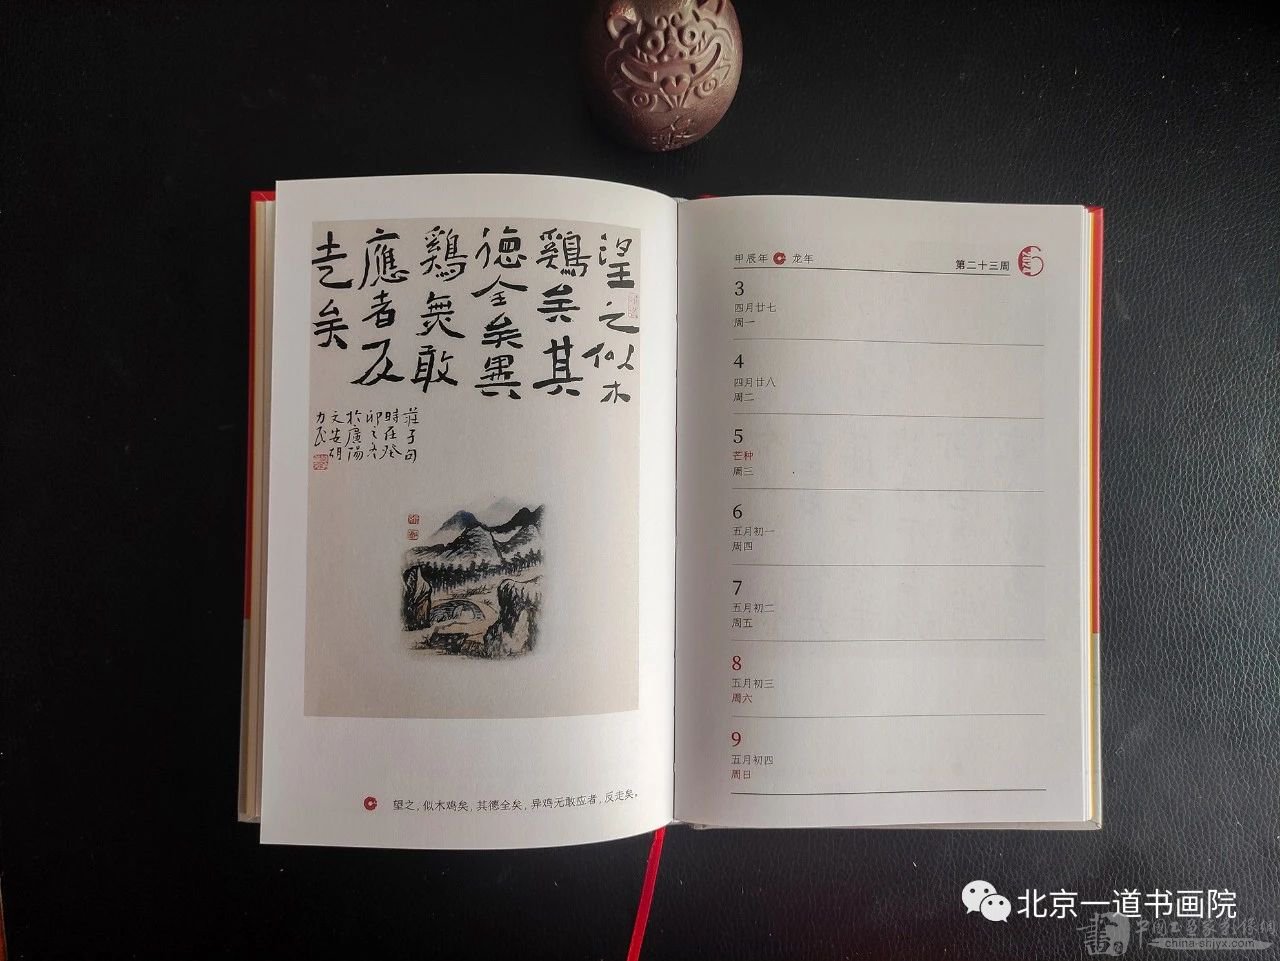 望之似木
鷄矣其
德全矣異
鷄無敢
應者反
走矣
莊子句
時在癸
卯之冬
於廣陽
文安胡
力民
望之，似木鸡矣，其德全矣，异鸡无敢应者，反走矣。
甲辰年 龙年
第二十三周
2024
3
四月廿七
周一
4
四月廿八
周二
5
芒种
周三
6
五月初一
周四
7
五月初二
周五
8
五月初三
周六
9
五月初四
周日
北京一道书画院
中国书画家影像網
china-shjyx.com